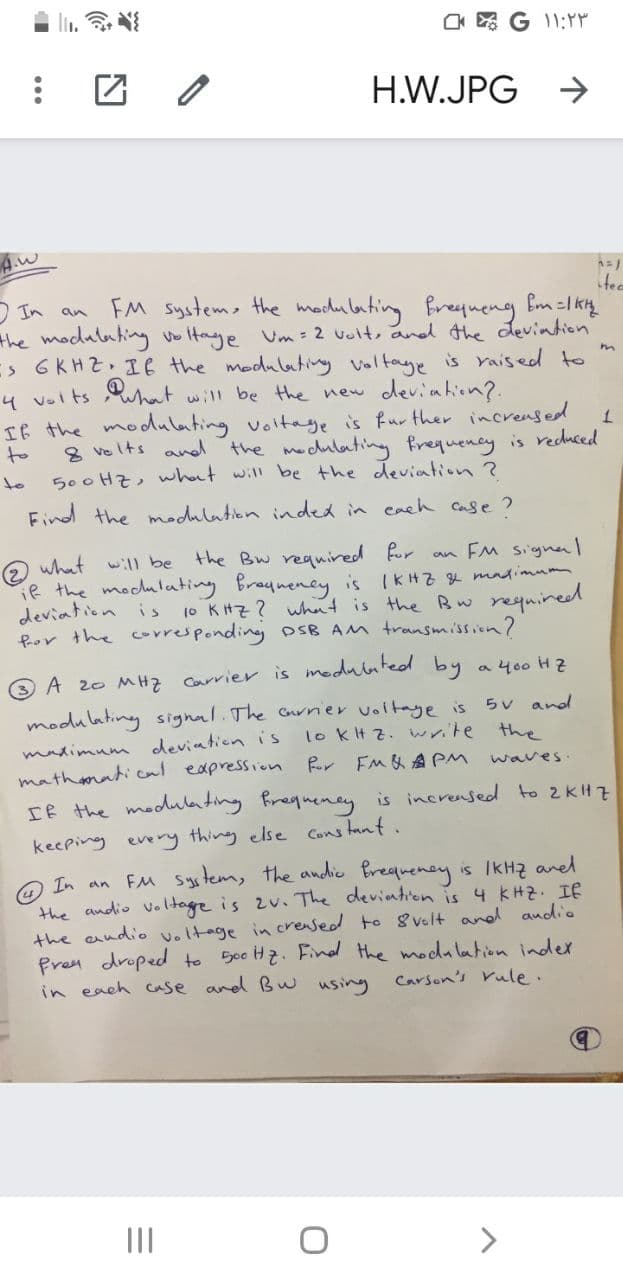 G ۱۱:۲۳
H.W.JPG
H.W
① In an FM system, the modulating frequency fm=1kHz
the modulating voltage Vm = 2 volt, and the deviation
is 6KHZ. If the modulating voltage is raised to
4 volts, ① what will be the new deviation?.
If the modulating voltage is further increased
to 8 volts and the modulating frequency is reduced
to 500HZ, what will be the deviation?
Find the modulation index in each case?
② what will be the BW required for an FM signal
if the modulating frequency is 1KHZ & maximum
deviation is 10 KHZ? what is the BW required
for the corresponding DSB AM transmission?
③ A 20 MHZ Carrier is modulated by a 400 HZ
modulating signal. The carrier voltage is 5v and
maximum deviation is 10 KHZ. write the
mathmatical expression for FM & PM waves.
If the modulating frequency is increased to 2KHZ
keeping every thing else constant.
④ In an FM system, the audio frequency is 1KHZ and
the audio voltage is 2v. The deviation is 4 KHZ. If
the audio voltage increased to 8volt and audio
freq droped to 500 HZ. Find the modulation index
in each case and BW using Carson's rule.
⑨